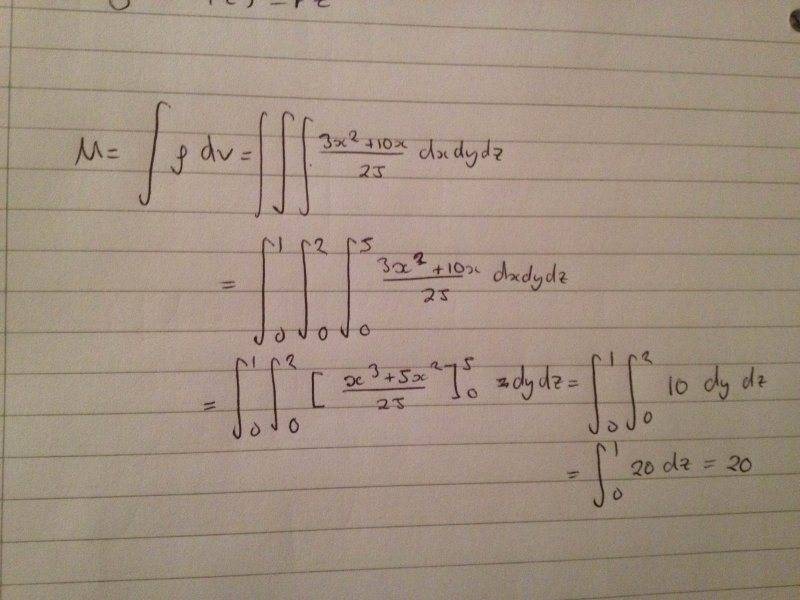 M = ∫ ρ dv = ∫∫∫ (3x² + 10x)/25 dx dy dz
= ∫₀¹ ∫₀² ∫₀⁵ (3x² + 10x)/25 dx dy dz
= ∫₀¹ ∫₀² [ (x³ + 5x²)/25 ]₀⁵ dy dz = ∫₀¹ ∫₀² 10 dy dz
= ∫₀¹ 20 dz = 20